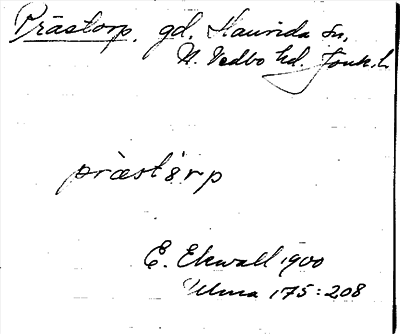 Prästorp. gd. Haurida sn,
N. Vedbo hd. Jönk. L
pràstᵒ̀rp
E. Ekwall 1900
Ulma 175:208